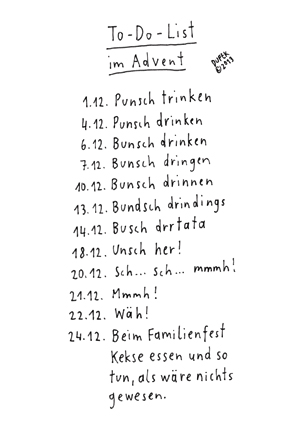 To-Do-List
im Advent
PUPEK
©2013
1.12. Punsch trinken
4.12. Punsch drinken
6.12. Bunsch drinken
7.12. Bunsch dringen
10.12. Bunsch drinnen
13.12. Bundsch drindings
14.12. Busch drrtata
18.12. Unsch her!
20.12. Sch... sch... mmmh!
21.12. Mmmh!
22.12. Wäh!
24.12. Beim Familienfest
Kekse essen und so
tun, als wäre nichts
gewesen.